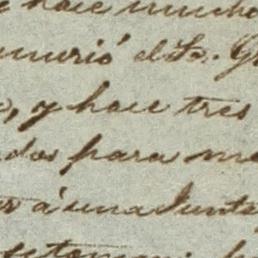 y hace mucho
murió el Sr. G
, y hace tres
dos para me
á una Junta